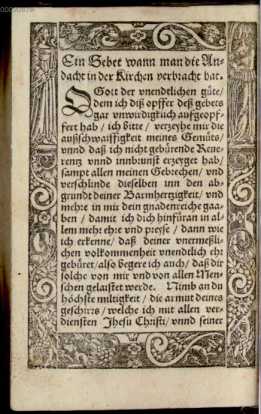 Ein Gebet wann man die An-
dacht in der Kirchen verbracht hat.
O Gott der vnendtlichen güte/
dem ich diß opffer deß gebets
gar vnwirdigklich auffgeopf-
fert hab / ich bitte / verzeyhe mir die
außschwaiffigkeit meines Gemütes/
vnnd daß ich nicht gebürende Reue-
rentz vnnd innbrunst erzeyget hab/
sampt allen meinen Gebrechen/ vnd
verschlinde dieselben inn den ab-
grundt deiner Barmhertzigkeit/ vnd
mehre in mir dein gnadenreiche gaa-
ben / damit ich dich hinfüran in al-
lem mehr ehre vnd preyse / dann wie
ich erkenne/ daß deiner vnermeßli-
chen volkommenheit vnendtlich ehr
gebüret/ also begere ich auch/ daß dir
solche von mir vnd von allen Men-
schen gelaistet werde. Nimb an du
höchste miltigkeit / die armut deines
geschirrs / welche ich mit allen ver-
diensten Jhesu Christi/ vnnd seiner